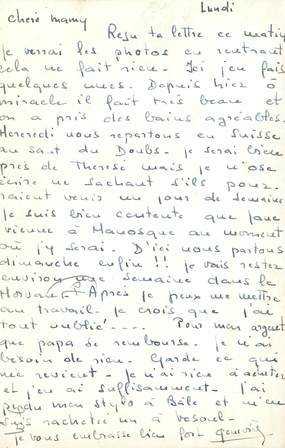 Lundi
Chère mamy
Reçu ta lettre ce matin
je verrai les photos en rentrant
cela ne fait rien. Ici j'en fais
quelques unes. Depuis hier ô
miracle il fait très beau et
on a pris des bains agréables.
Mercredi nous repartons en Suisse
au saut du Doubs. je serai bien
près de Therese mais je n'ose
écrire ne sachant s'ils pour-
raient venir un jour de semaine
je suis bien contente que
vienne à Manosque au moment
où j'y serai. D'ici nous partons
dimanche enfin!! je vais rester
environ une semaine dans le
Morvan. Après je peux me mettre
au travail. Je crois que j'ai
tout oublié.... Pour mon argent
que papa se rembourse. je n'ai
besoin de rien. Garde ce qui
me revient. Je n'ai rien à acheter
et j'en ai suffisamment. J'ai
perdu mon stylo à Bâle et m'en
suis rachetée un à Vesoul.
je vous embrasse bien fort